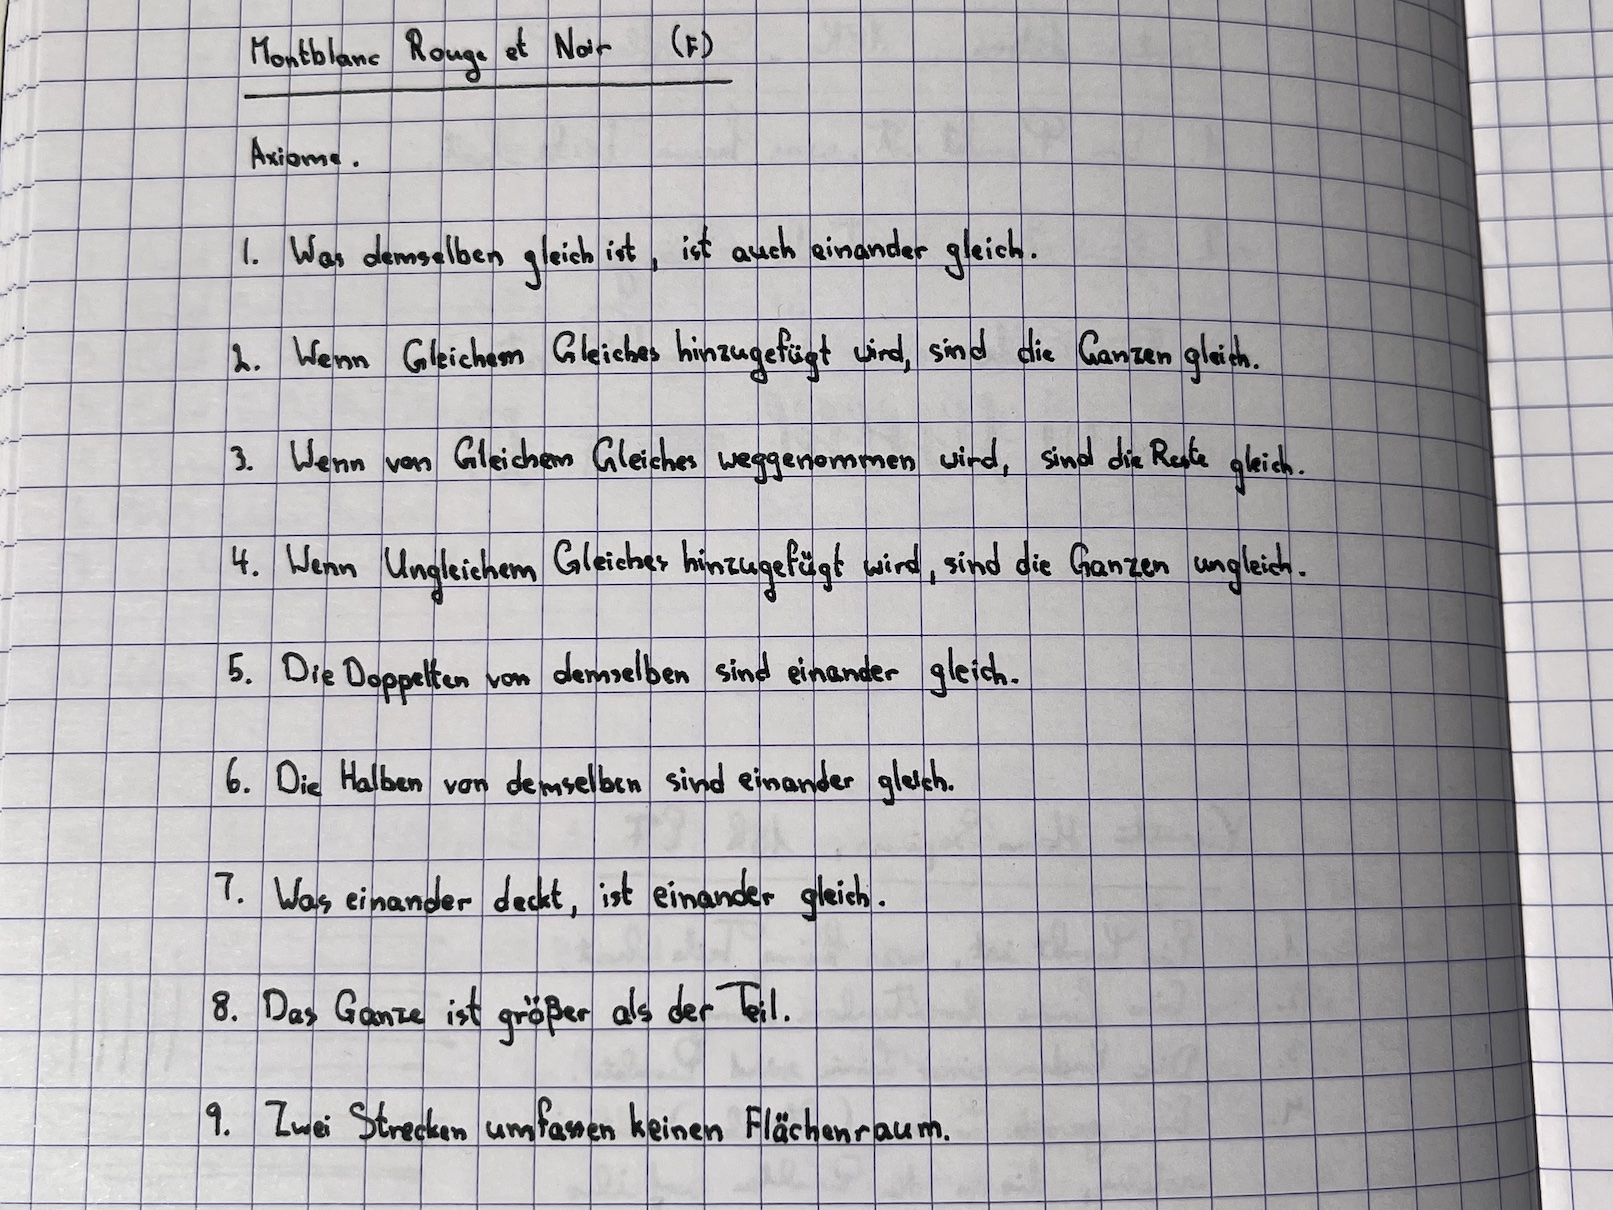 Montblanc Rouge et Noir (F)
Axiome.
1. Was demselben gleich ist, ist auch einander gleich.
2. Wenn Gleichem Gleiches hinzugefügt wird, sind die Ganzen gleich.
3. Wenn von Gleichem Gleiches weggenommen wird, sind die Reste gleich.
4. Wenn Ungleichem Gleiches hinzugefügt wird, sind die Ganzen ungleich.
5. Die Doppelten von demselben sind einander gleich.
6. Die Halben von demselben sind einander gleich.
7. Was einander deckt, ist einander gleich.
8. Das Ganze ist größer als der Teil.
9. Zwei Strecken umfassen keinen Flächenraum.